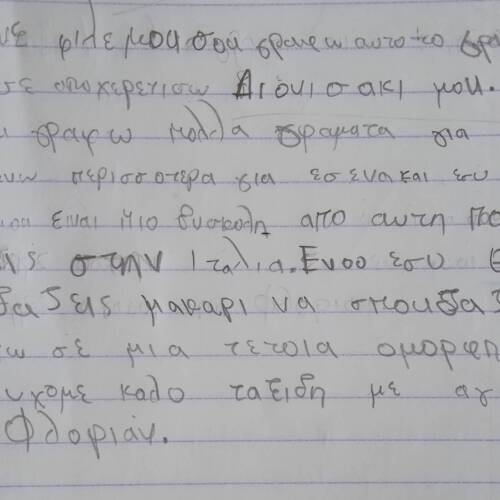 φιλε μου σου γραφω αυτο το
σε αποχερετισω Διονισακι μου.
γραφω πολλα γραματα για
περισσοτερα για εσενα και εσυ
ειναι πιο δυσκολη απο αυτη
στην Ιταλια. Ενοο εσυ
μακαρι να σπουδαζ
σε μια τετοια ομορφη
καλο ταξιδη με αγ
Φλοριαν.